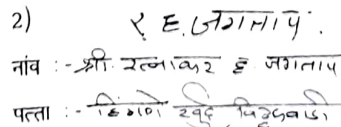 2) र ह. जगताप.
नांव :- श्री. रत्नाकर ह जगताप
पत्ता :- हिंगणे खुर्द विठ्ठलवाडी